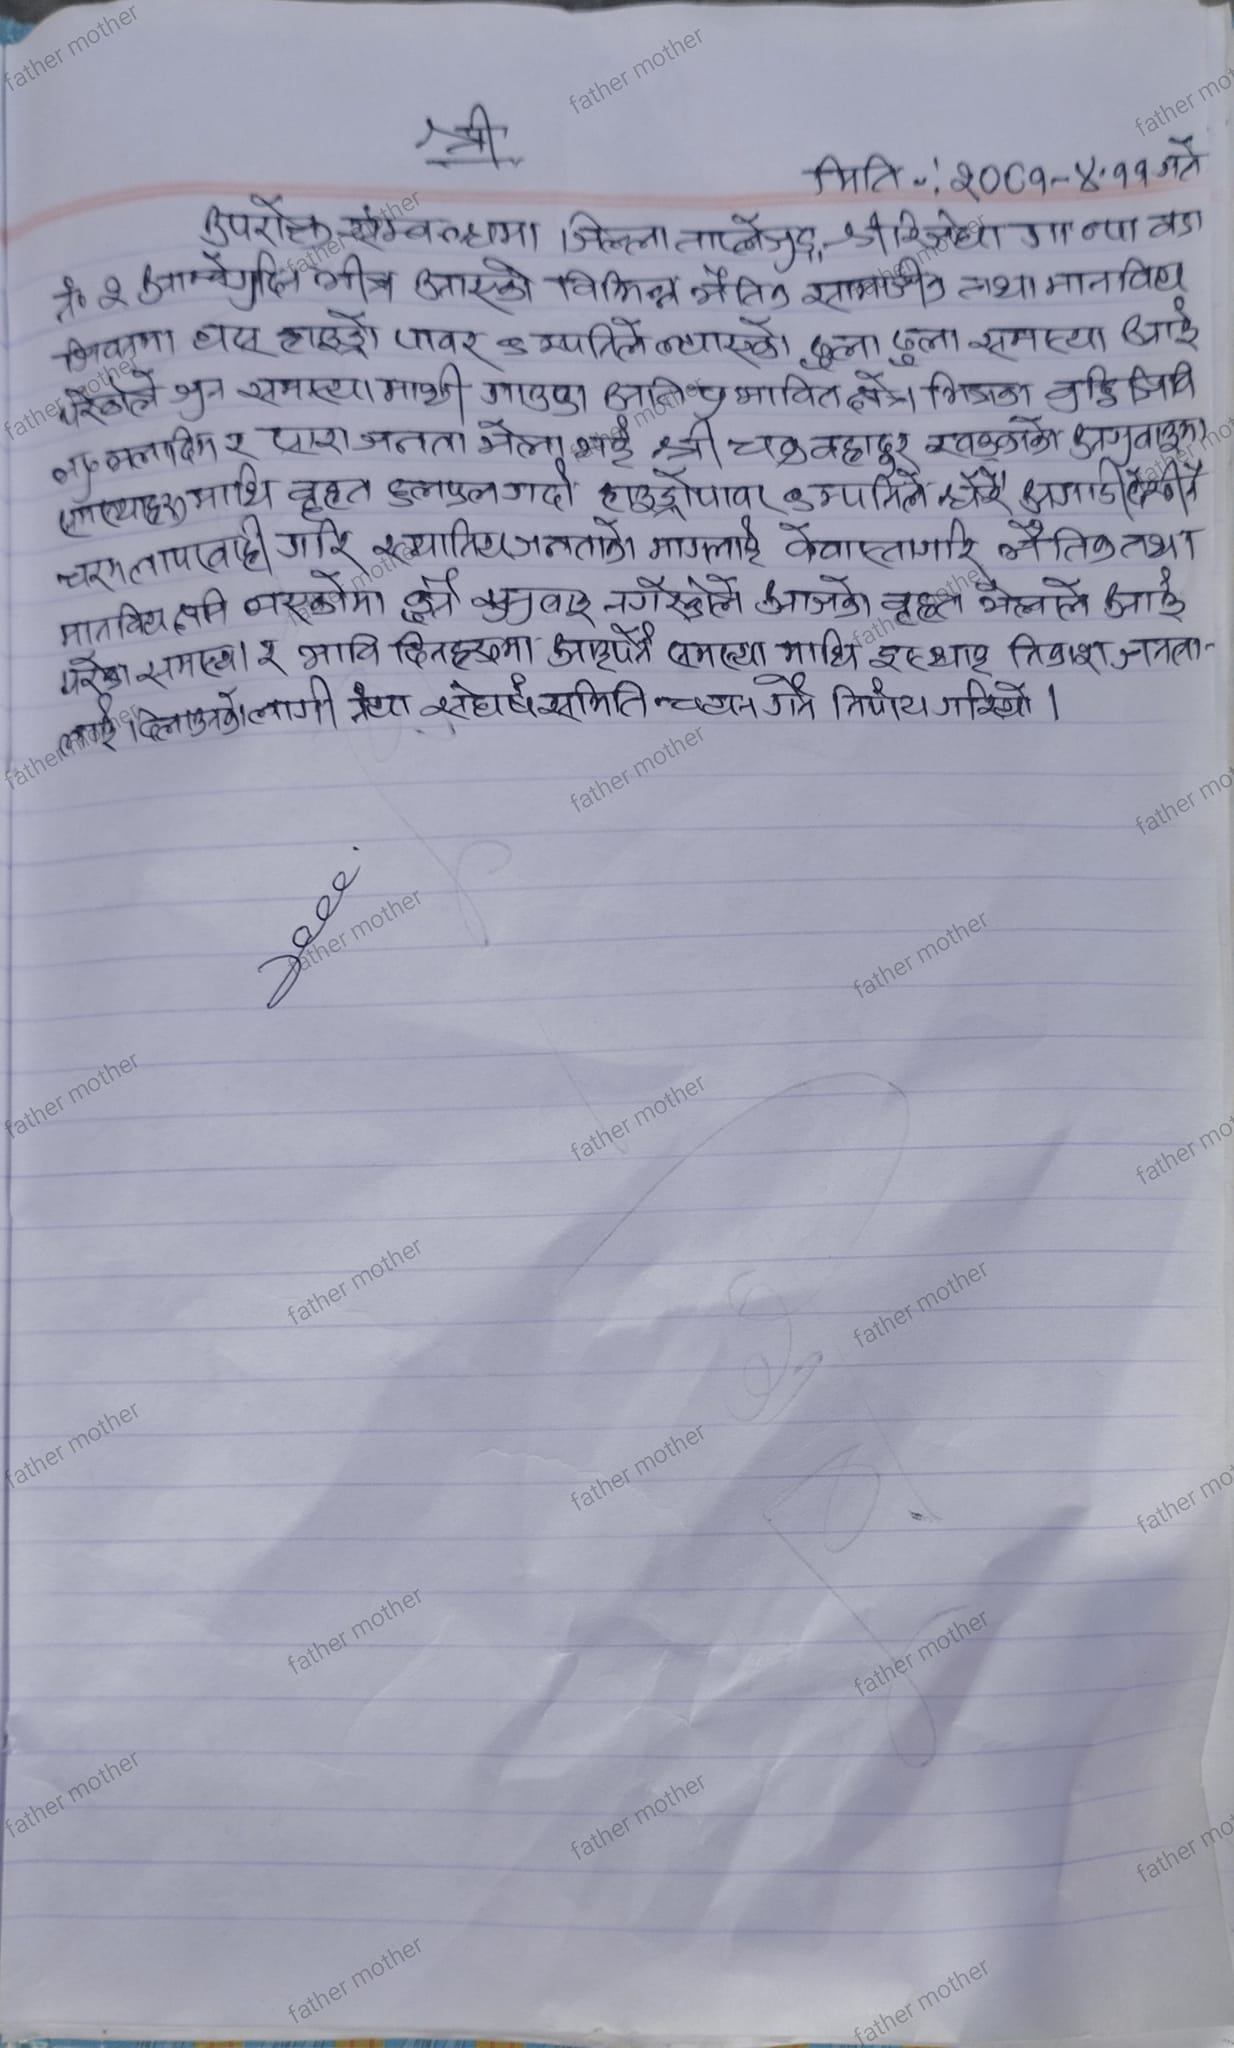 श्री
मिति -: २०८१-४-११ गते
उपरोक्त सम्बन्धमा जिल्ला ताप्लेजुङ, गा पा वडा
नं २ भीत्र आएको विभिन्न भैतिक सामाजीक तथा मानविय
यस हाइड्रो पावर कम्पनिले ल्याएको ठुला ठुला समस्या आई
परेकोले समस्या माथी गाउका अति प्रभावित क्षेत्र भित्रका वुद्धि जिवि
र सारा जनता भेला भई श्री चक्र वहादुर को अगुवाइमा
समस्याहरु माथि वृहत छलफल गर्दा हाइड्रोपावर कम्पनिले धेरै अगाडी देखीनै
चरमलापरवाही गरि स्थानिय जनताको मागलाई वेवास्तागरि भैतिक तथा
मानविय क्षति भएकोमा कुनै सुनुवाइ नगरेकोले आजको वृहत भेलाले आई
परेका समस्या र भावि दिनहरुमा आइपर्ने समस्या माथि निकाश जनता-
लाई दिलाउनको लागी संघर्ष समिति चयन गर्ने निर्णय गरियो ।
father mother